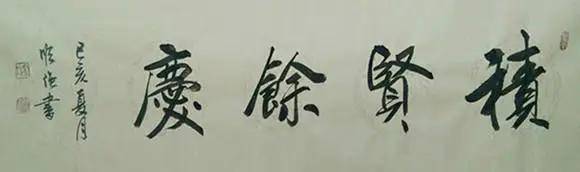 積賢餘慶
己亥夏月
順德書